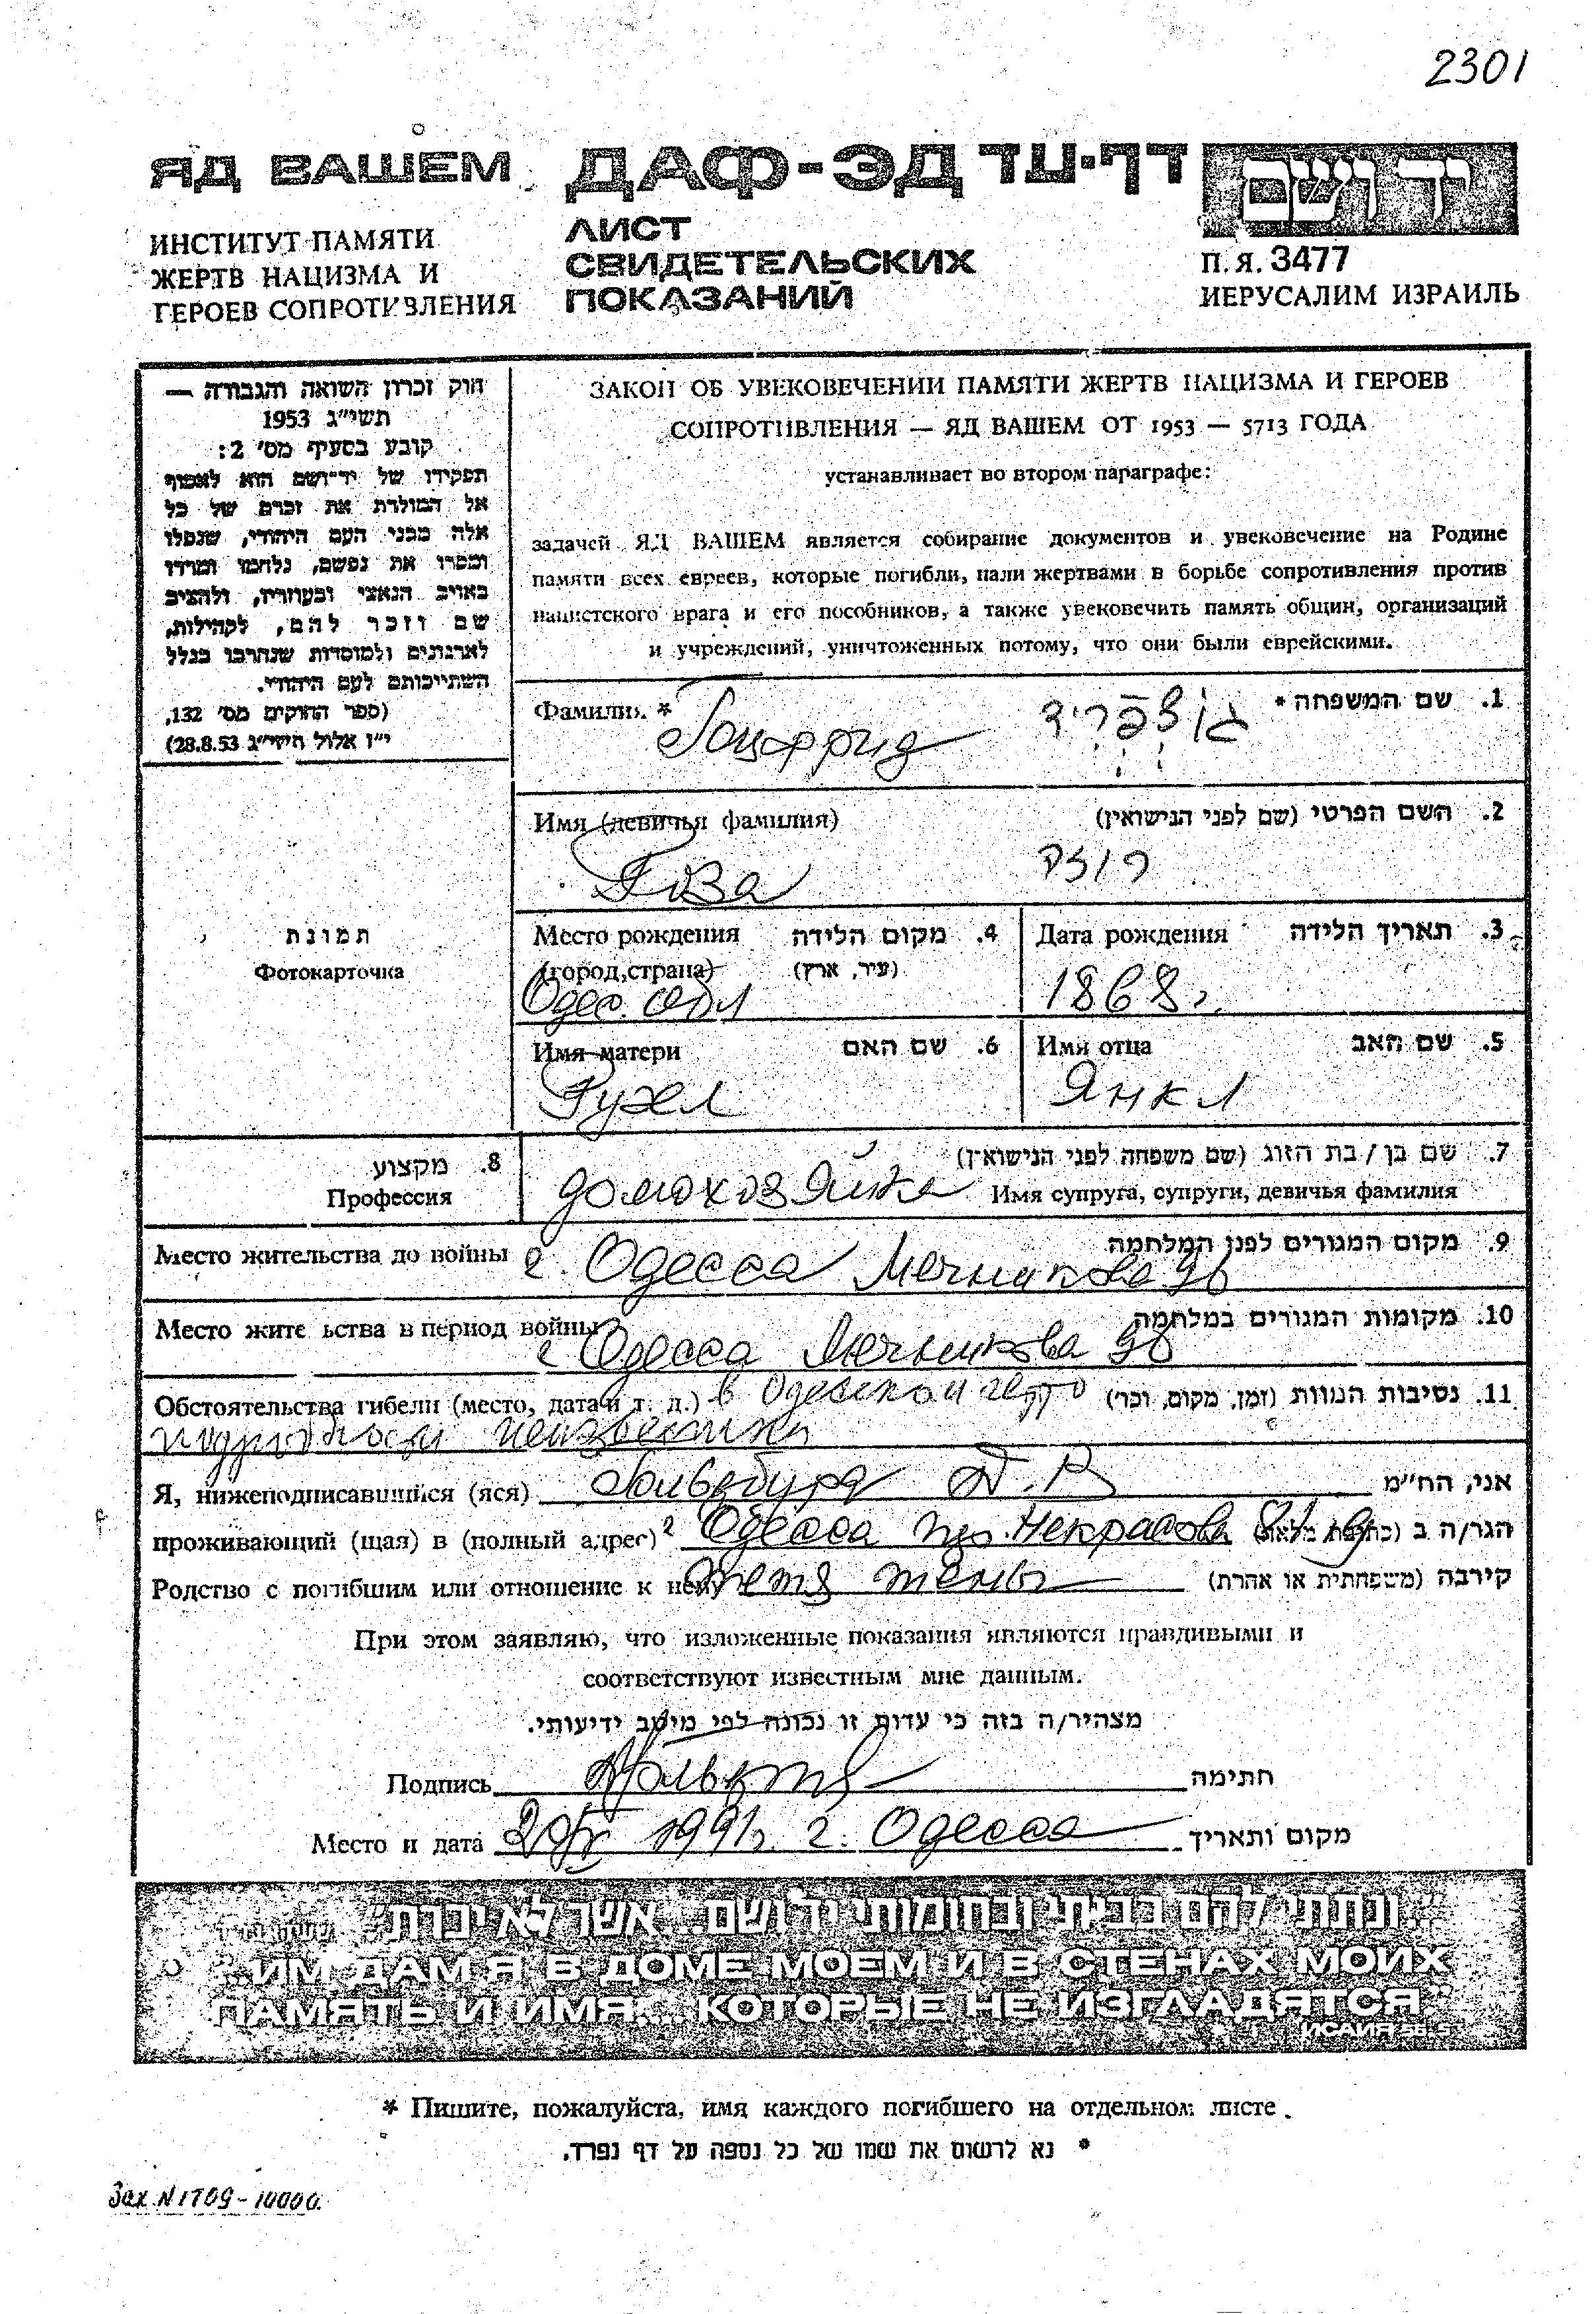 2301
ЯД ВАШЕМ ДАФ-ЭД דף-עד יד ושם
ИНСТИТУТ ПАМЯТИ
ЖЕРТВ НАЦИЗМА И
ГЕРОЕВ СОПРОТИВЛЕНИЯ
ЛИСТ
СВИДЕТЕЛЬСКИХ
ПОКАЗАНИЙ
П.Я. 3477
ИЕРУСАЛИМ ИЗРАИЛЬ
חוק זכרון השואה והגבורה —
תשי"ג 1953
קובע בסעיף מס' 2:
תפקידו של יד־ושם הוא לאסוף
אל המולדת את זכרם של כל
אלה מבני העם היהודי, שנפלו
ומסרו את נפשם, נלחמו ומרדו
באויב הנאצי ובעוזריו, ולהציב
שם וזכר להם, לקהילות,
לארגונים ולמוסדות שנחרבו בגלל
השתייכותם לעם היהודי.
(ספר החוקים מס' 132,
י"ז אלול תשי"ג 28.8.53)
ЗАКОН ОБ УВЕКОВЕЧЕНИИ ПАМЯТИ ЖЕРТВ НАЦИЗМА И ГЕРОЕВ
СОПРОТИВЛЕНИЯ — ЯД ВАШЕМ ОТ 1953 — 5713 ГОДА
устанавливает во втором параграфе:
задачей ЯД ВАШЕМ является собирание документов и увековечение на Родине
памяти всех евреев, которые погибли, пали жертвами в борьбе сопротивления против
нацистского врага и его пособников, а также увековечить память общин, организаций
и учреждений, уничтоженных потому, что они были еврейскими.
Фамилия * 1. שם המשפחה *
Гоцфрид גוצפריד
Имя (девичья фамилия) 2. השם הפרטי (שם לפני הנישואין)
Роза רוזה
תמונת
Фотокарточка
Место рождения 4. מקום הלידה
(город, страна) (עיר, ארץ)
Одес. обл
Дата рождения 3. תאריך הלידה
1868 г.
Имя матери 6. שם האם
Рухел
Имя отца 5. שם האב
Янкл
8. מקצוע
Профессия
домохозяйка
7. שם בן / בת הזוג (שם משפחה לפני הנישואין)
Имя супруга, супруги, девичья фамилия
Место жительства до войны г. Одесса Мечникова 96 9. מקום המגורים לפני המלחמה
Место жительства в период войны г Одесса Мечникова 96 10. מקומות המגורים במלחמה
Обстоятельства гибели (место, дата и т. д.) в Одесском гетто 11. נסיבות המוות (זמן, מקום, וכו')
подробности неизвестны
Я, нижеподписавшийся (яся) אני, הח"מ
проживающий (щая) в (полный адрес) г Одесса пер. Некрасова הגר/ה ב (כתובת מלאה)
Родство с погибшим или отношение к нему тетя жены קירבה (משפחתית או אחרת)
При этом заявляю, что изложенные показания являются правдивыми и
соответствуют известным мне данным.
מצהיר/ה בזה כי עדות זו נכונה לפי מיטב ידיעותי.
Подпись חתימה
Место и дата 1991 г. г. Одесса מקום ותאריך
"...ונתתי להם בביתי ובחומותי יד ושם... אשר לא יכרת"
"...ИМ ДАМ Я В ДОМЕ МОЕМ И В СТЕНАХ МОИХ
ПАМЯТЬ И ИМЯ... КОТОРЫЕ НЕ ИЗГЛАДЯТСЯ"
ИСАИЯ 56.5
* Пишите, пожалуйста, имя каждого погибшего на отдельном листе.
* נא לרשום את שמו של כל נספה על דף נפרד.
Зак. N 1709 - 10000.